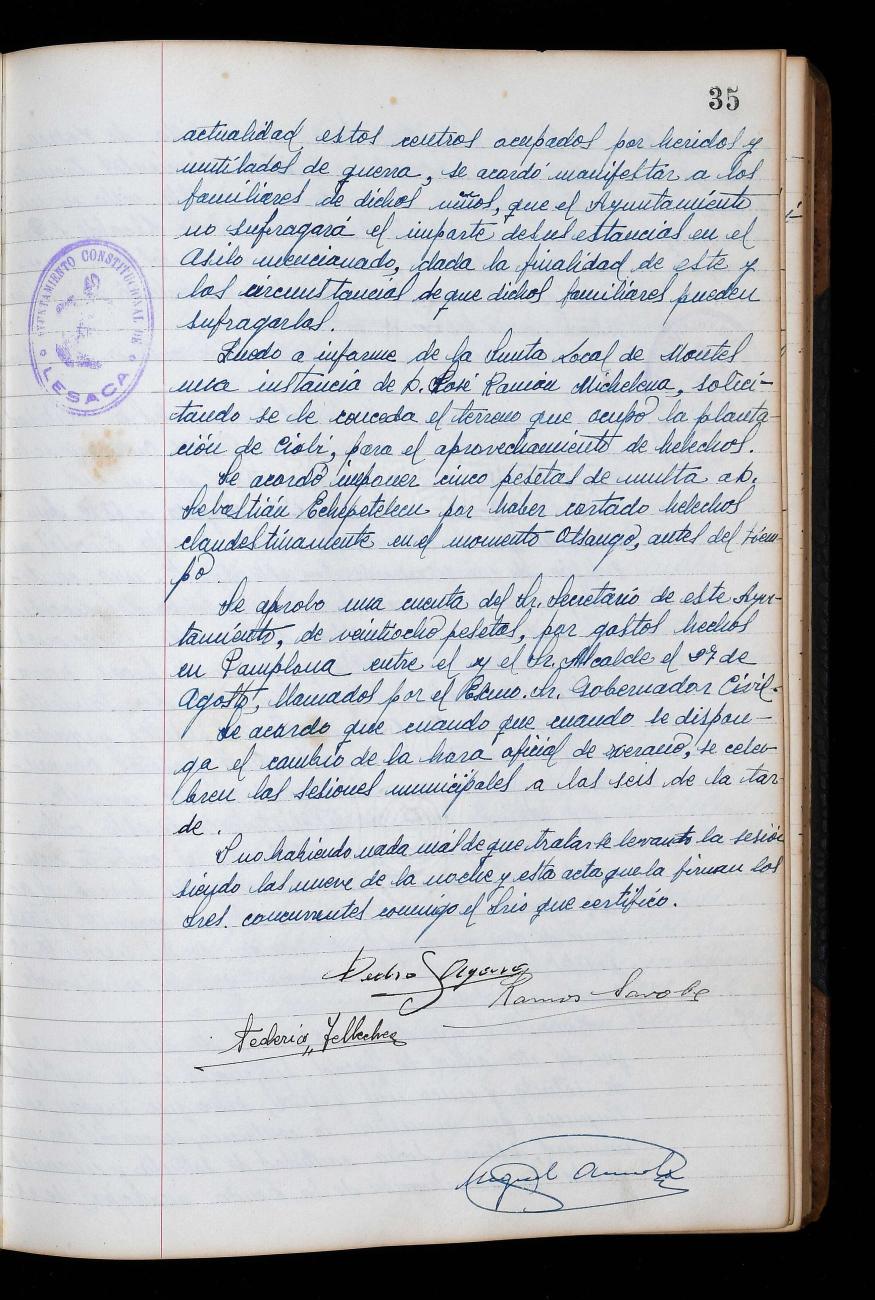 35
actualidad estos centros ocupados por heridos y
mutilados de guerra, se acordó manifestar a los
familiares de dichos niños, que el Ayuntamiento
no sufragará el importe de sus estancias en el
Asilo mencionado, dada la finalidad de este y
las circunstancias de que dichos familiares pueden
sufragarlas.
AYUNTAMIENTO CONSTITUCIONAL DE
LESACA
Quedo a informe de la Junta Local de Montes
una instancia de D. José Ramón Michelena, solici-
tando se le conceda el terreno que ocupó la planta-
ción de Ciobi, para el aprovechamiento de helechos.
Se acordó imponer cinco pesetas de multa a D.
Sebastián Echepetelecu por haber cortado helechos
clandestinamente en el momento Otsango, antes del tiem-
po.
Se aprobo una cuenta del Sr. Secretario de este Ayun-
tamiento, de veintiocho pesetas, por gastos hechos
en Pamplona entre el y el Sr. Alcalde el 27 de
Agosto, llamados por el Excmo. Sr. Gobernador Civil.
Se acordo que cuando que cuando se dispon-
ga el cambio de la hora oficial de verano, se cele-
bren las sesiones municipales a las seis de la tar-
de.
Y no habiendo nada más de que tratar se levantó la sesión
siendo las nueve de la noche y esta acta que la firman los
Sres. concurrentes conmigo el Srio que certifico.
Pedro
Ramos Sarobe
Federico Tellechea
Miguel